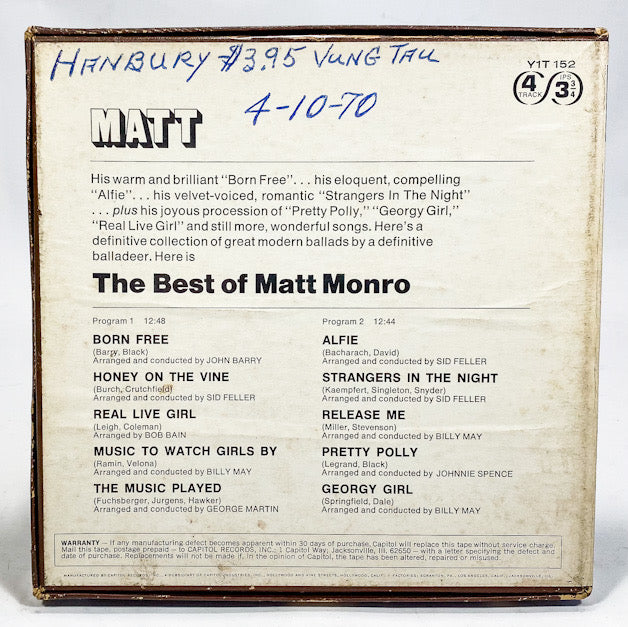 HANBURY $3.95 VUNG TAU
4-10-70
Y1T 152
4 TRACK 3 3/4 IPS
MATT
His warm and brilliant "Born Free"... his eloquent, compelling
"Alfie"... his velvet-voiced, romantic "Strangers In The Night"
... plus his joyous procession of "Pretty Polly," "Georgy Girl,"
"Real Live Girl" and still more, wonderful songs. Here's a
definitive collection of great modern ballads by a definitive
balladeer. Here is
The Best of Matt Monro
Program 1 12:48
BORN FREE
(Barry, Black)
Arranged and conducted by JOHN BARRY
HONEY ON THE VINE
(Burch, Crutchfield)
Arranged and conducted by SID FELLER
REAL LIVE GIRL
(Leigh, Coleman)
Arranged by BOB BAIN
MUSIC TO WATCH GIRLS BY
(Ramin, Velona)
Arranged and conducted by BILLY MAY
THE MUSIC PLAYED
(Fuchsberger, Jurgens, Hawker)
Arranged and conducted by GEORGE MARTIN
Program 2 12:44
ALFIE
(Bacharach, David)
Arranged and conducted by SID FELLER
STRANGERS IN THE NIGHT
(Kaempfert, Singleton, Snyder)
Arranged and conducted by SID FELLER
RELEASE ME
(Miller, Stevenson)
Arranged and conducted by BILLY MAY
PRETTY POLLY
(Legrand, Black)
Arranged and conducted by JOHNNIE SPENCE
GEORGY GIRL
(Springfield, Dale)
Arranged and conducted by BILLY MAY
WARRANTY – If any manufacturing defect becomes apparent within 30 days of purchase, Capitol will replace this tape without service charge.
Mail this tape, postage prepaid – to CAPITOL RECORDS, INC.; 1 Capitol Way, Jacksonville, Ill. 62650 – with a letter specifying the defect and
date of purchase. Replacements will not be made if, in the opinion of Capitol, the tape has been altered, repaired or misused.
MANUFACTURED BY CAPITOL RECORDS, INC., A SUBSIDIARY OF CAPITOL INDUSTRIES, INC., HOLLYWOOD AND VINE STREETS, HOLLYWOOD, CALIF. FACTORIES: SCRANTON, PA., LOS ANGELES, CALIF., JACKSONVILLE, ILL.